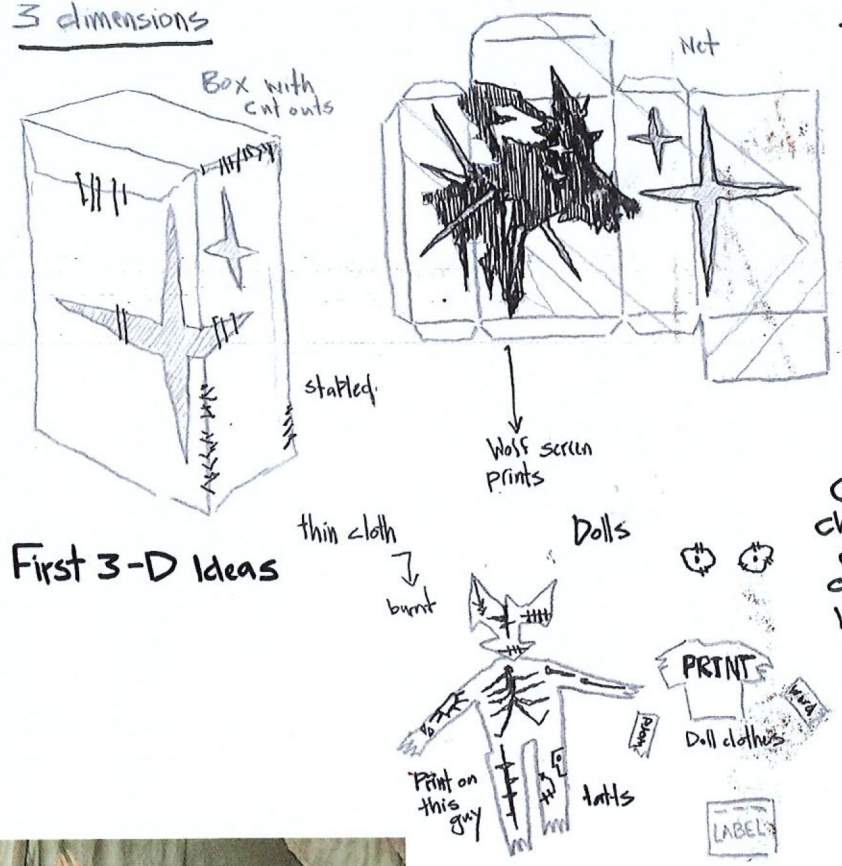 3 dimensions
Box with
cut outs
Net
stapled.
Wolf screen
prints
First 3-D Ideas
thin cloth
burnt
Dolls
PRINT
word
word
Doll clothes
Print on
this
guy
tatts
LABEL